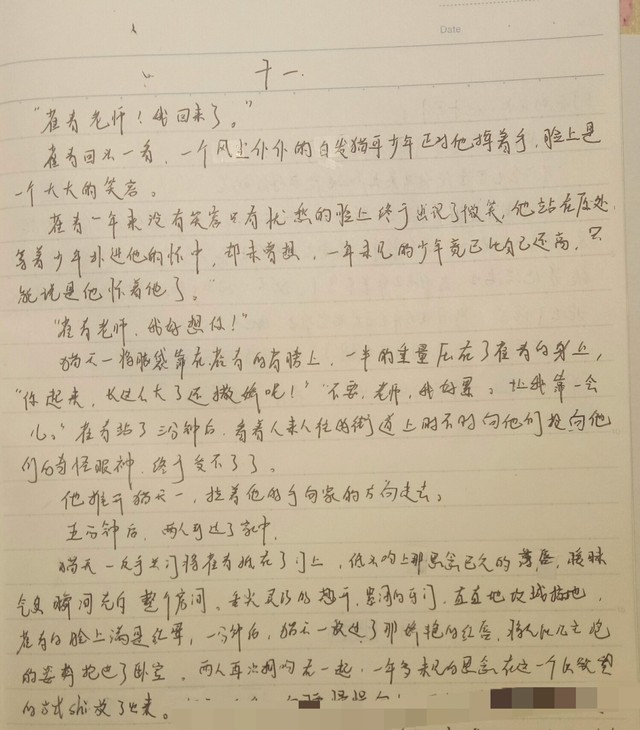 Date
十一.
"崔有老师！我回来了。"
崔有回头一看，一个风尘仆仆的白发猫耳少年正对他挥着手，脸上是
一个大大的笑容。
崔有一年来没有笑容只有忧愁的脸上终于出现了微笑，他站在原处
等着少年扑进他的怀中，却未曾想，一年未见的少年竟已比自己还高，只
能说是他怀着他了。"
"崔有老师，我好想你！"
猫天一将脑袋靠在崔有的肩膀上，一半的重量压在了崔有的身上，
"你起来，长这么大了还撒娇呢！""不要，老师，我好累。让我靠一会
儿。"崔有站了三分钟后，看着人来人往的街道上时不时向他们投向他
们的奇怪眼神，终于受不了了。
他推开猫天一，拉着他的手向家的方向走去。
五分钟后，两人到了家中，
猫天一反手关门将崔有抵在了门上，低头吻上那思念已久的薄唇，暧昧
气息瞬间充斥整个房间，舌尖灵巧的撬开紧闭的牙门，直直地攻城掠地，
崔有的脸上满是红晕，一分钟后，猫天一放过了那娇艳的红唇，将人以公主抱
的姿势抱进了卧室。两人再次拥吻在一起，一年多未见的思念在这一个以欲望
的方式shi放了出来。